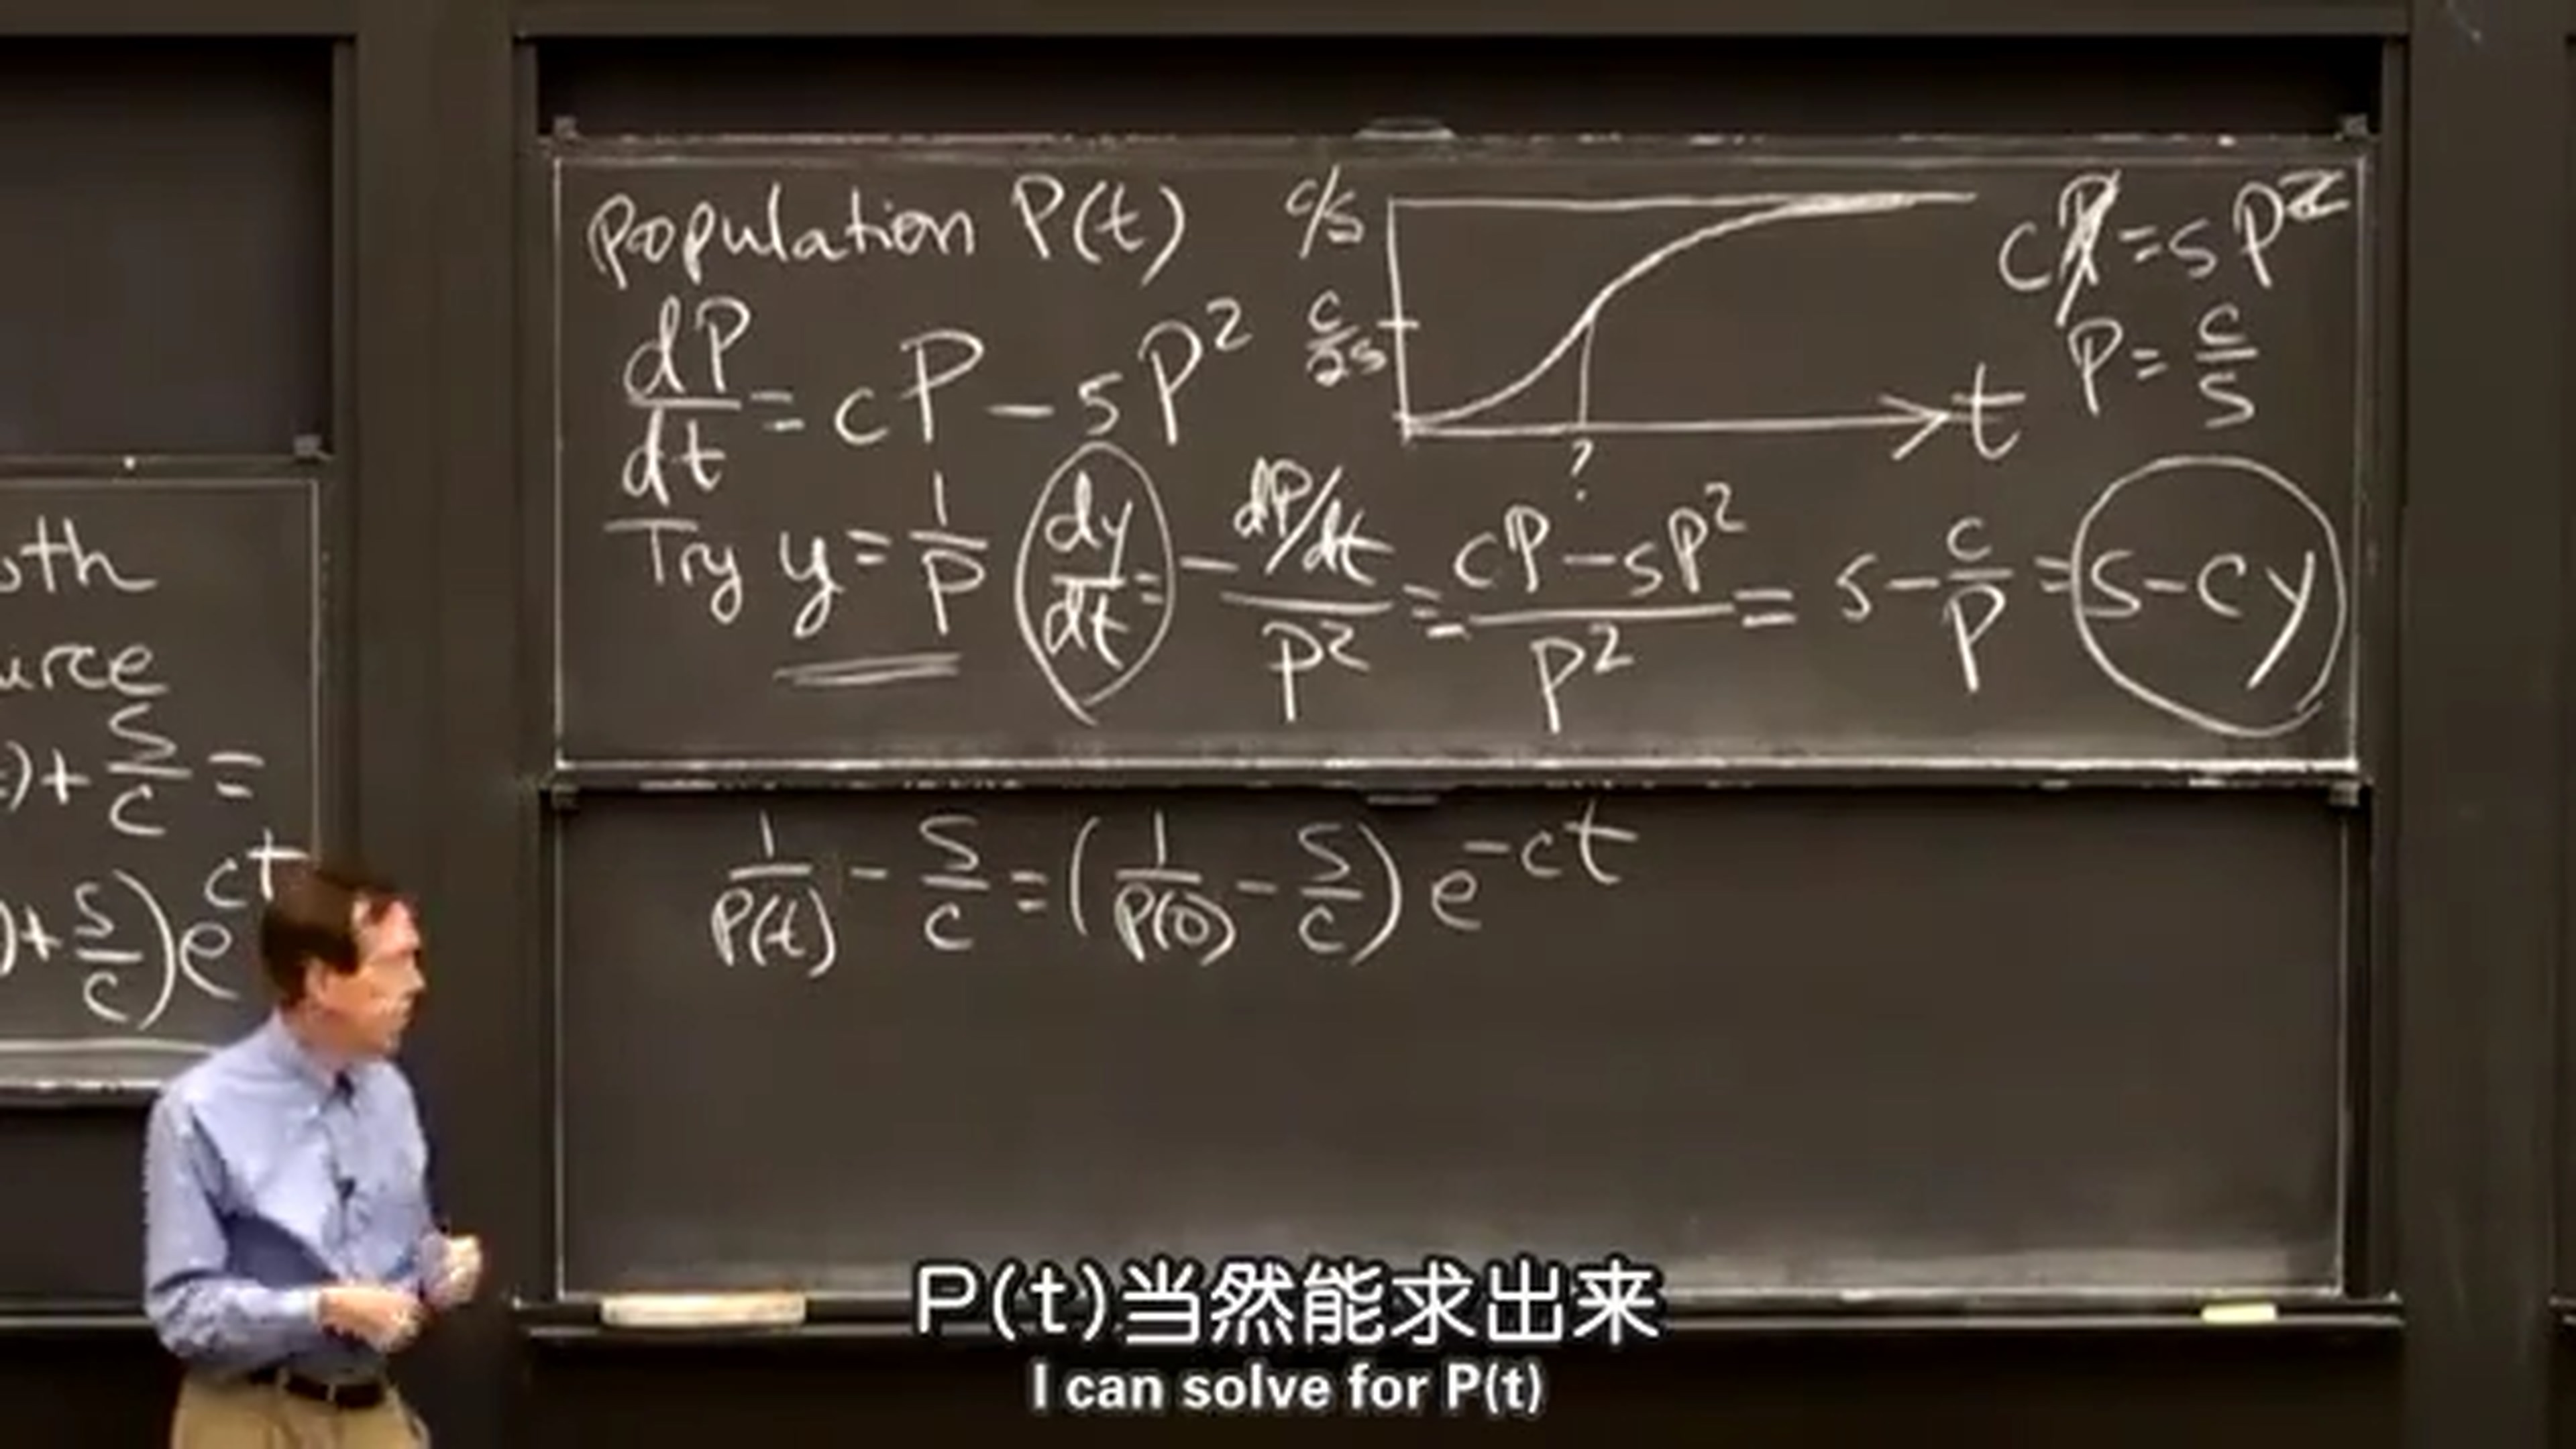 oth
urce
)+ S/C =
)+ S/C) e^ct
population P(t)
dP/dt = cP - sP²
c/s
c/2s
t
?
cP = sP²
P = c/s
Try y = 1/P dy/dt = - dP/dt / P² = cP - sP² / P² = s - c/P = s - cy
1/P(t) - S/C = (1/P(0) - S/C) e^-ct
P(t)当然能求出来
I can solve for P(t)